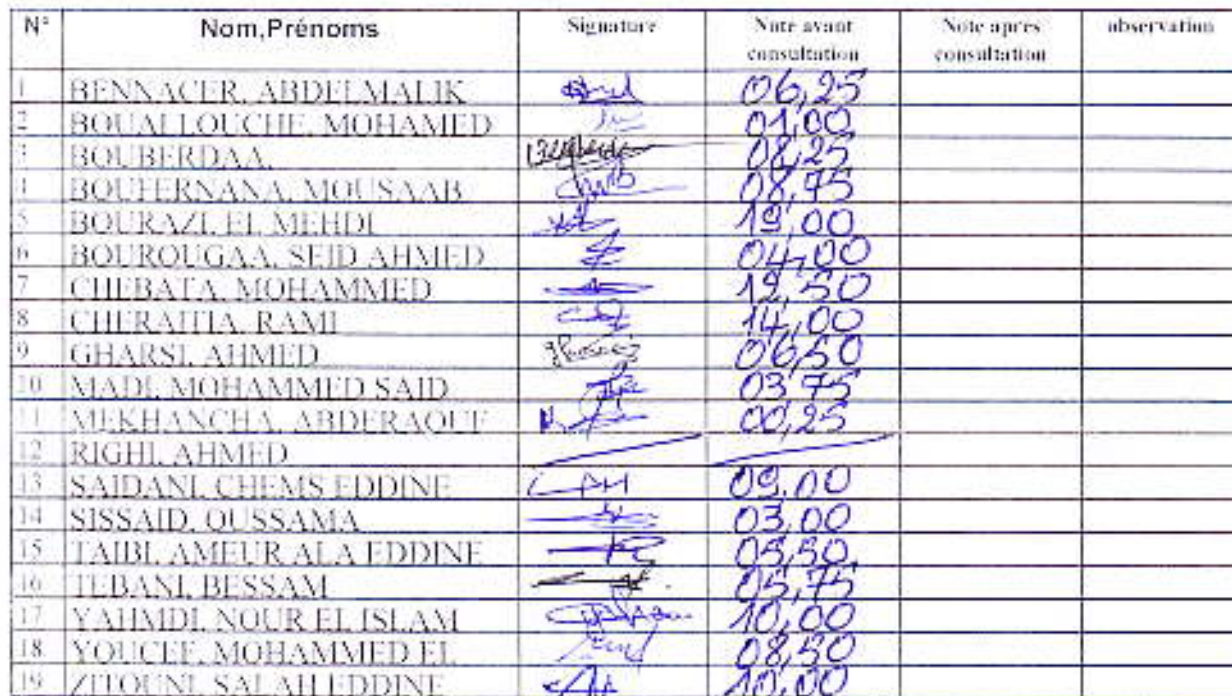 N° Nom,Prénoms Signature Note avant consultation Note après consultation observation
1 BENNACER, ABDELMALIK 06,25
2 BOUALLOUCHE, MOHAMED 01,00
3 BOUBERDAA, 08,25
4 BOUFERNANA, MOUSAAB 08,75
5 BOURAZI, EL MEHDI 19,00
6 BOUROUGAA, SEID AHMED 04,00
7 CHEBATA, MOHAMMED 12,50
8 CHERAITIA, RAMI 14,00
9 GHARSI, AHMED 06,50
10 MADI, MOHAMMED SAID 03,75
11 MEKHANCHA, ABDERAOUF 00,25
12 RIGHI, AHMED
13 SAIDANI, CHEMS EDDINE 09,00
14 SISSAID, OUSSAMA 03,00
15 TAIBI, AMEUR ALA EDDINE 05,50
16 TEBANI, BESSAM 05,75
17 YAHMDI, NOUR EL ISLAM 10,00
18 YOUCEF, MOHAMMED EL 08,50
19 ZITOUNI, SALAH EDDINE 10,00